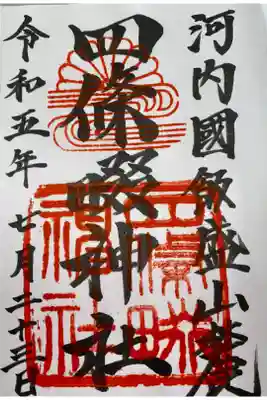 河内國飯盛山麓
四條畷神社
令和五年 七月二十三日
四條畷神社